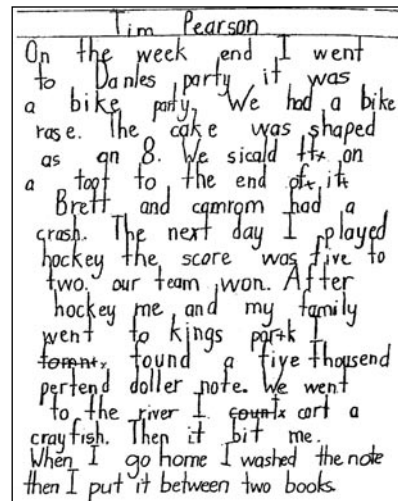 Tim Pearson
On the week end I went
to Danles party it was
a bike party, We had a bike
rase. The cake was shaped
as an 8. We sicald on
a toot to the end of it
Brett and camrom had a
crash. The next day I played
hockey the score was five to
two. our team won. After
hockey me and my family
went to kings park I
found a five thousend
pertend doller note. We went
to the river I cort a
crayfish. Then it bit me.
When I go home I washed the note
then I put it between two books.